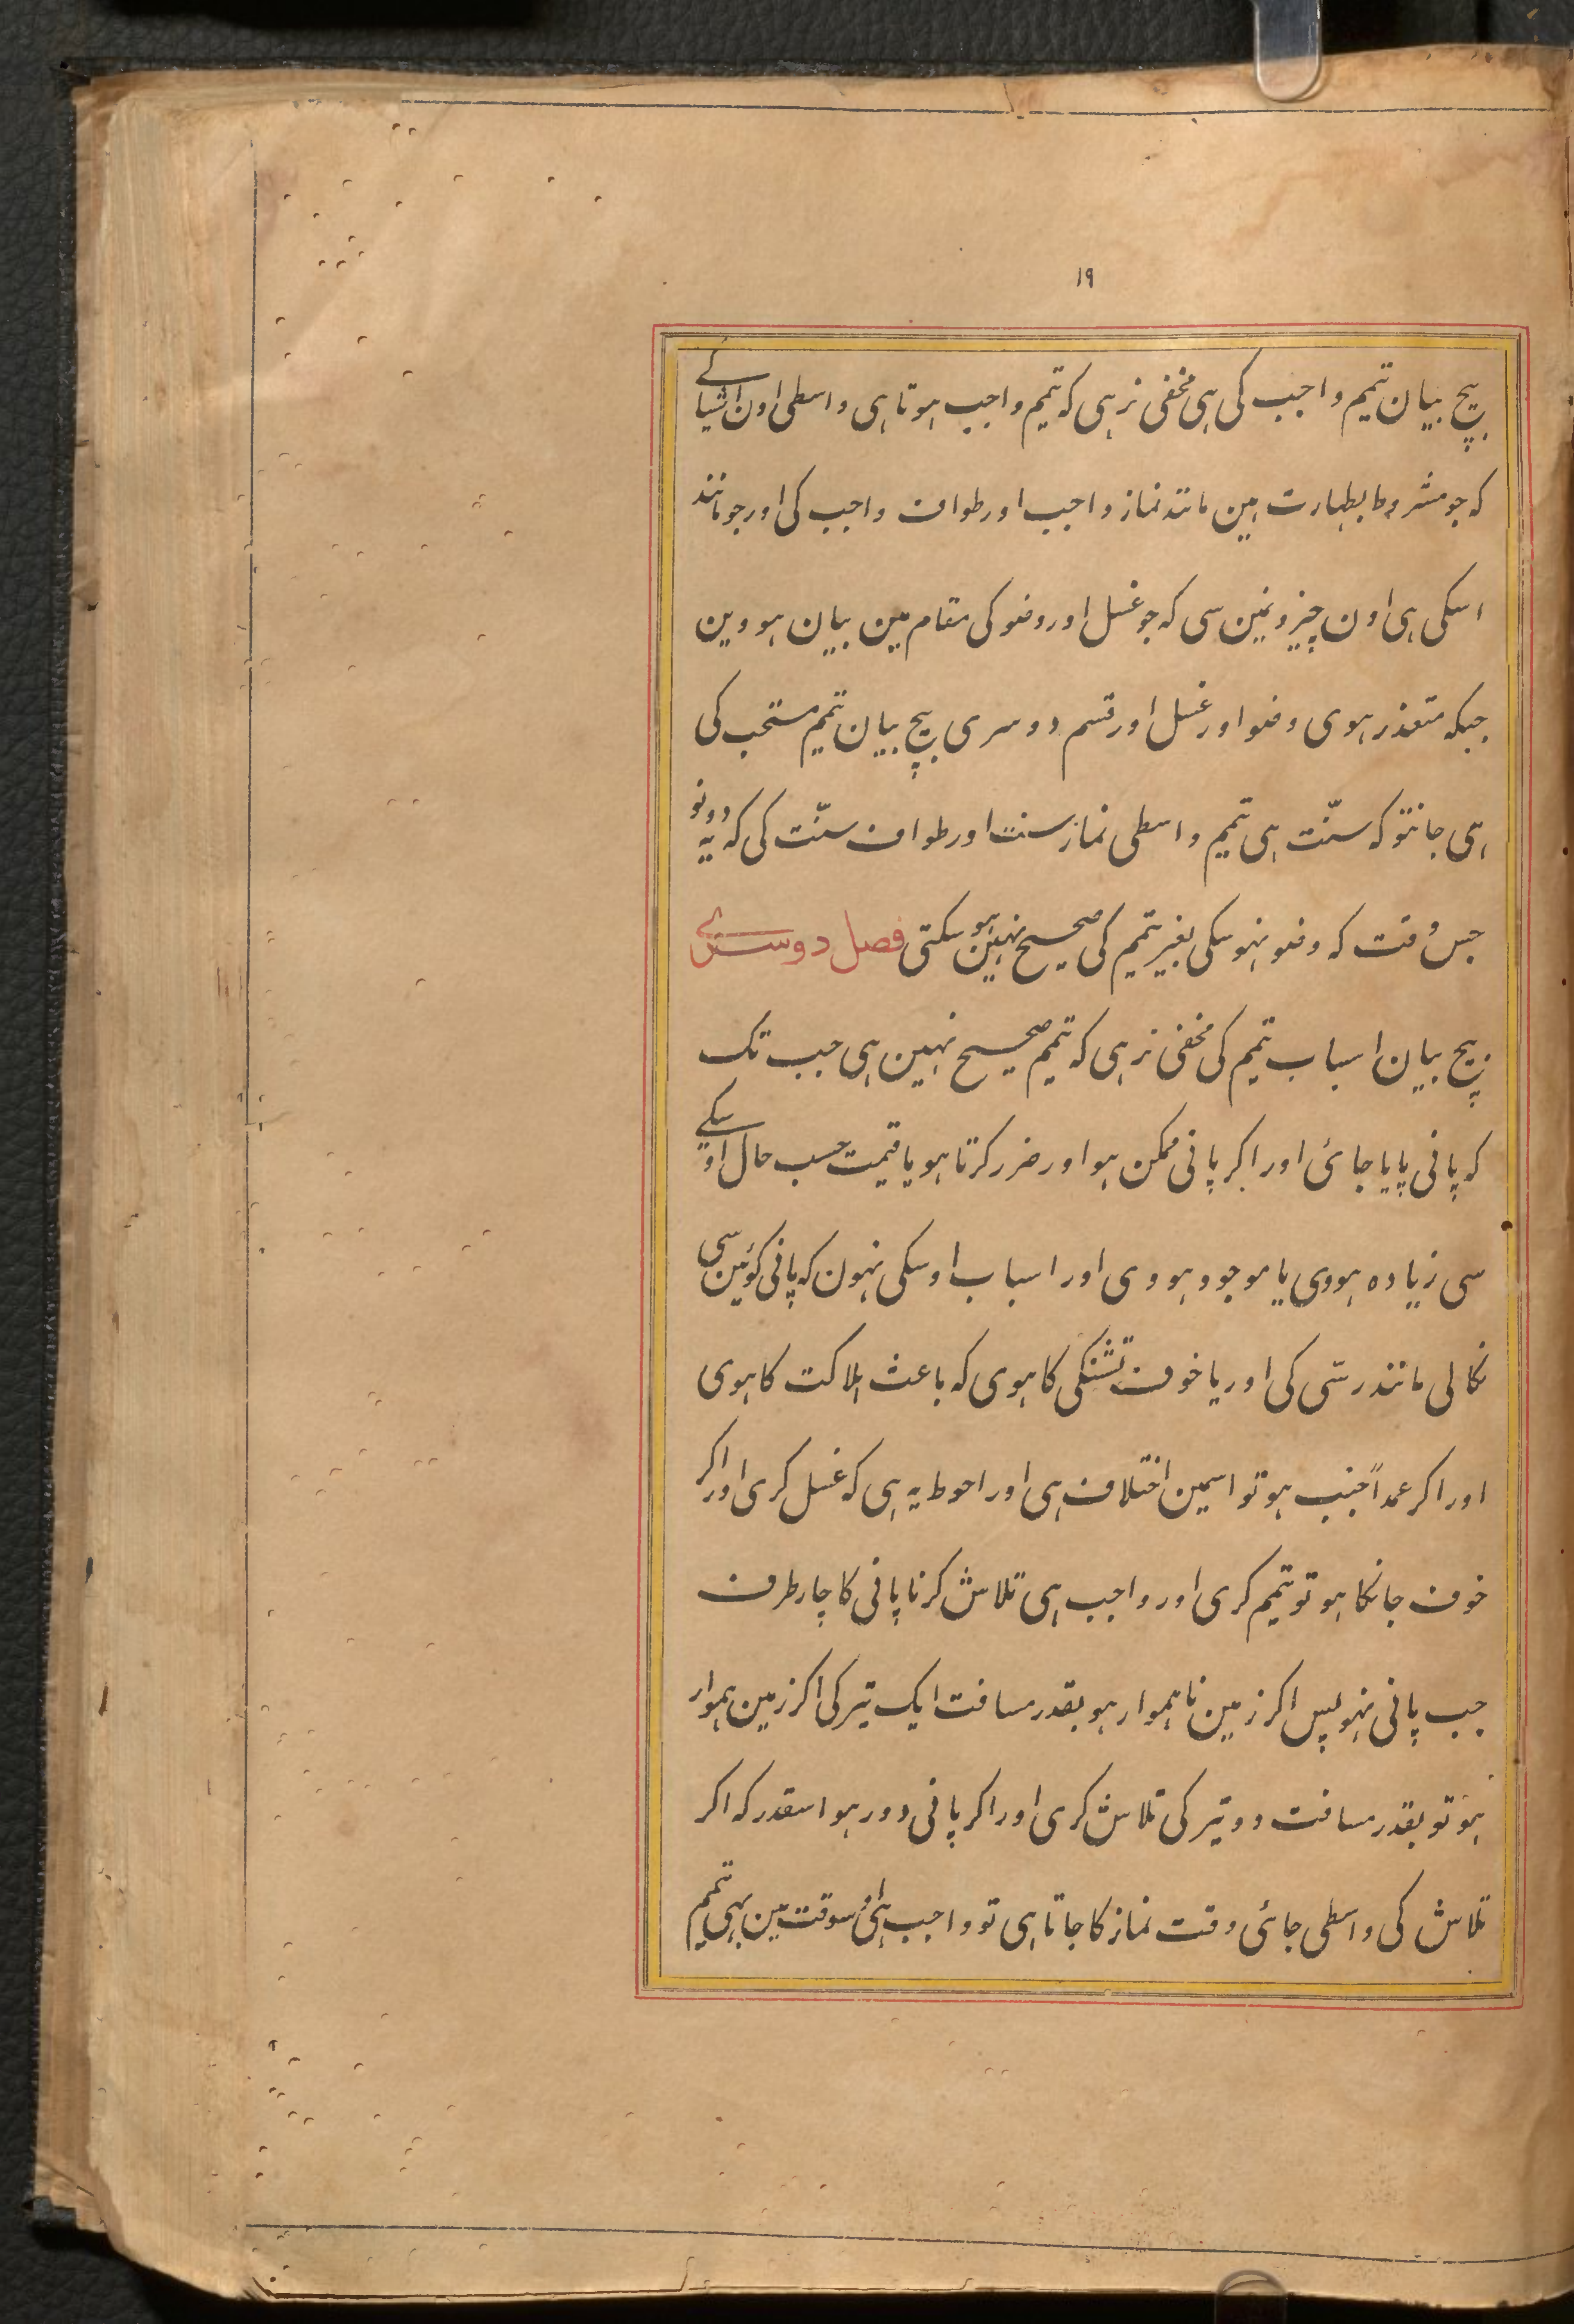 ۱۹
بیچ بیان تیمم واجب کی ہی مخفی نرہی کہ تیمم واجب ہوتا ہی واسطی اون اشیا کے
کہ جو مشروط بطہارت ہین مانند نماز واجب اور طواف واجب کی اور جو مانند
اسکی ہی اون چیزونمین سی کہ جو غسل اور وضو کی مقام مین بیان ہووین
جبکہ متعذر ہوی وضو اور غسل اور قسم دوسری بیچ بیان تیمم مستحب کی
ہی جانتو کہ سنّت ہی تیمم واسطی نماز سنت اور طواف سنّت کی کہ یہ دونو
جس وقت کہ وضو نہوسکی بغیر تیمم کی صحیح نہین ہوسکتی فصل دوسرے
بیچ بیان اسباب تیمم کی مخفی نرہی کہ تیمم صحیح نہین ہی جب تک
کہ پانی پایا جائ اور اکر پانی ممکن ہو اور ضرر کرتا ہو یا قیمت حسب حال اوسکے
سی زیادہ ہووی یا موجود ہووی اور اسباب اوسکی نہون کہ پانی کوئین سی
نکالی مانند رسّی کی اور یا خوف تشنکی کا ہوی کہ باعث ہلاکت کا ہوی
اور اکر عمداً جنب ہو تو اسمین اختلاف ہی اور احوط یہ ہی کہ غسل کری اور اکر
خوف جانکا ہو تو تیمم کری اور واجب ہی تلاش کرنا پانی کا چار طرف
جب پانی نہو پس اکر زمین ناہموار ہو بقدر مسافت ایک تیر کی اکر زمین ہموار
ہو تو بقدر مسافت دو تیر کی تلاش کری اور اکر پانی دور ہو اسقدر کہ اکر
تلاش کی واسطی جائ وقت نماز کا جاتا ہی تو واجب ہی اسوقت مین بہی تیمم